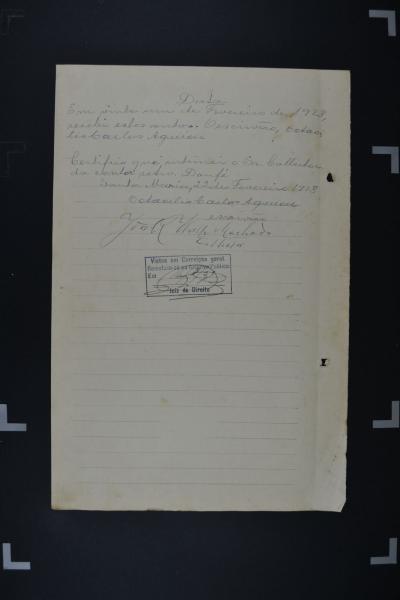 Data
Em vinte um de Fevereiro de 1928,
recebi estes autos. O escrivão, Octaci-
lio Carlos Aguiar
Certifico que intimei o Sr. Collector
da conta retro. Doufé
Santa Maria, 22 de Fevereiro 1928
Octacilio Carlos Aguiar
escrivão
João Machado
Vistos em Correição geral
Em
Juiz de Direito